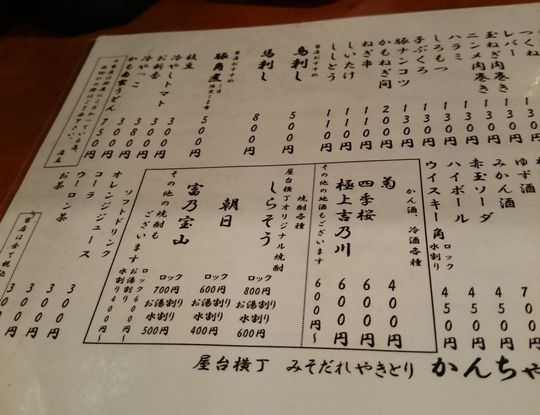 つくね
レバー
玉ねぎ肉巻き
ニンニク肉巻き
ハラミ
しろもつ
子ぶくろ
豚ナンコツ 130円
かもねぎ間 200円
ねぎ串 110円
しいたけ 110円
ししとう 110円
当店おすすめ
鳥刺し 500円
馬刺し 800円
当店おすすめ
豚角煮 500円
枝豆
冷やしトマト 300円
お新香 300円
冷やっこ 380円
かも南蛮うどん 750円
店主
ゆず酒
みかん酒
赤玉ソーダ
ハイボール 450円
ウイスキー角 ロック 水割り 450円
かん酒 冷酒各種
菊 400円
四季桜 600円
極上吉乃川 600円
その他の地酒もございます 600円～
焼酎各種
屋台横丁オリジナル焼酎
しらそう
ロック 800円
お湯割り
水割り 600円
朝日
ロック 600円
お湯割り
水割り 400円
富乃宝山
ロック 700円
お湯割り
水割り 500円
その他の焼酎もございます
ロック
お湯割り
水割り 400円～
ソフトドリンク
オレンジジュース 300円
コーラ 300円
ウーロン茶 300円
お茶
屋台横丁 みそだれやきとり かんちゃ